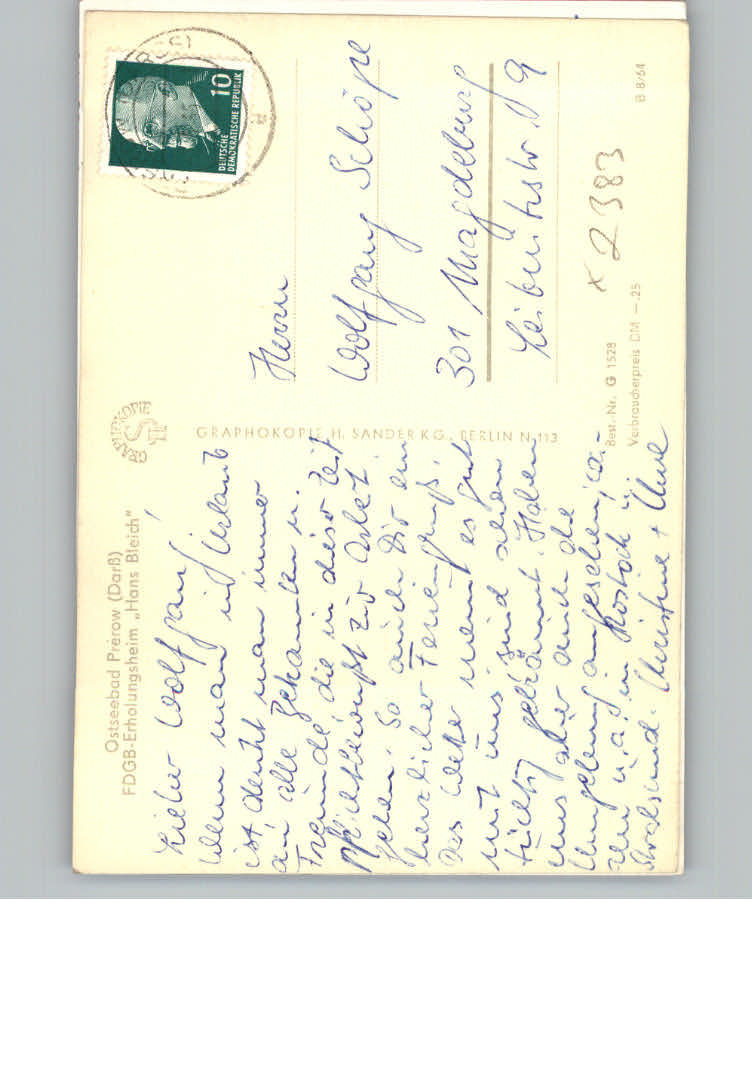 Ostseebad Prerow (Darß)
FDGB-Erholungsheim „Hans Bleich"
Lieber Wolfgang!
Wenn man in Urlaub
ist, denkt man immer
an alle Bekannten u.
Freunde, die in dieser Zeit
pflichtbewußt zur Arbeit
gehen. So auch Dir ein
herzlicher Feriengruß.
Das Wetter meint es gut
mit uns, sind schon
tüchtig gebräunt. Haben
uns aber auch die
Umgebung angesehen,
u. a. in Rostock u.
Stralsund. Christine + Uwe
GRAPHOKOPIE
GRAPHOKOPIE H. SANDER KG., BERLIN N 113
10
DEUTSCHE
DEMOKRATISCHE REPUBLIK
Herrn
Wolfgang Schöpe
301 Magdeburg
Leibnitzstr. 19
Best.-Nr. G 1528
Verbraucherpreis DM –.25
B 8/64
x 2383